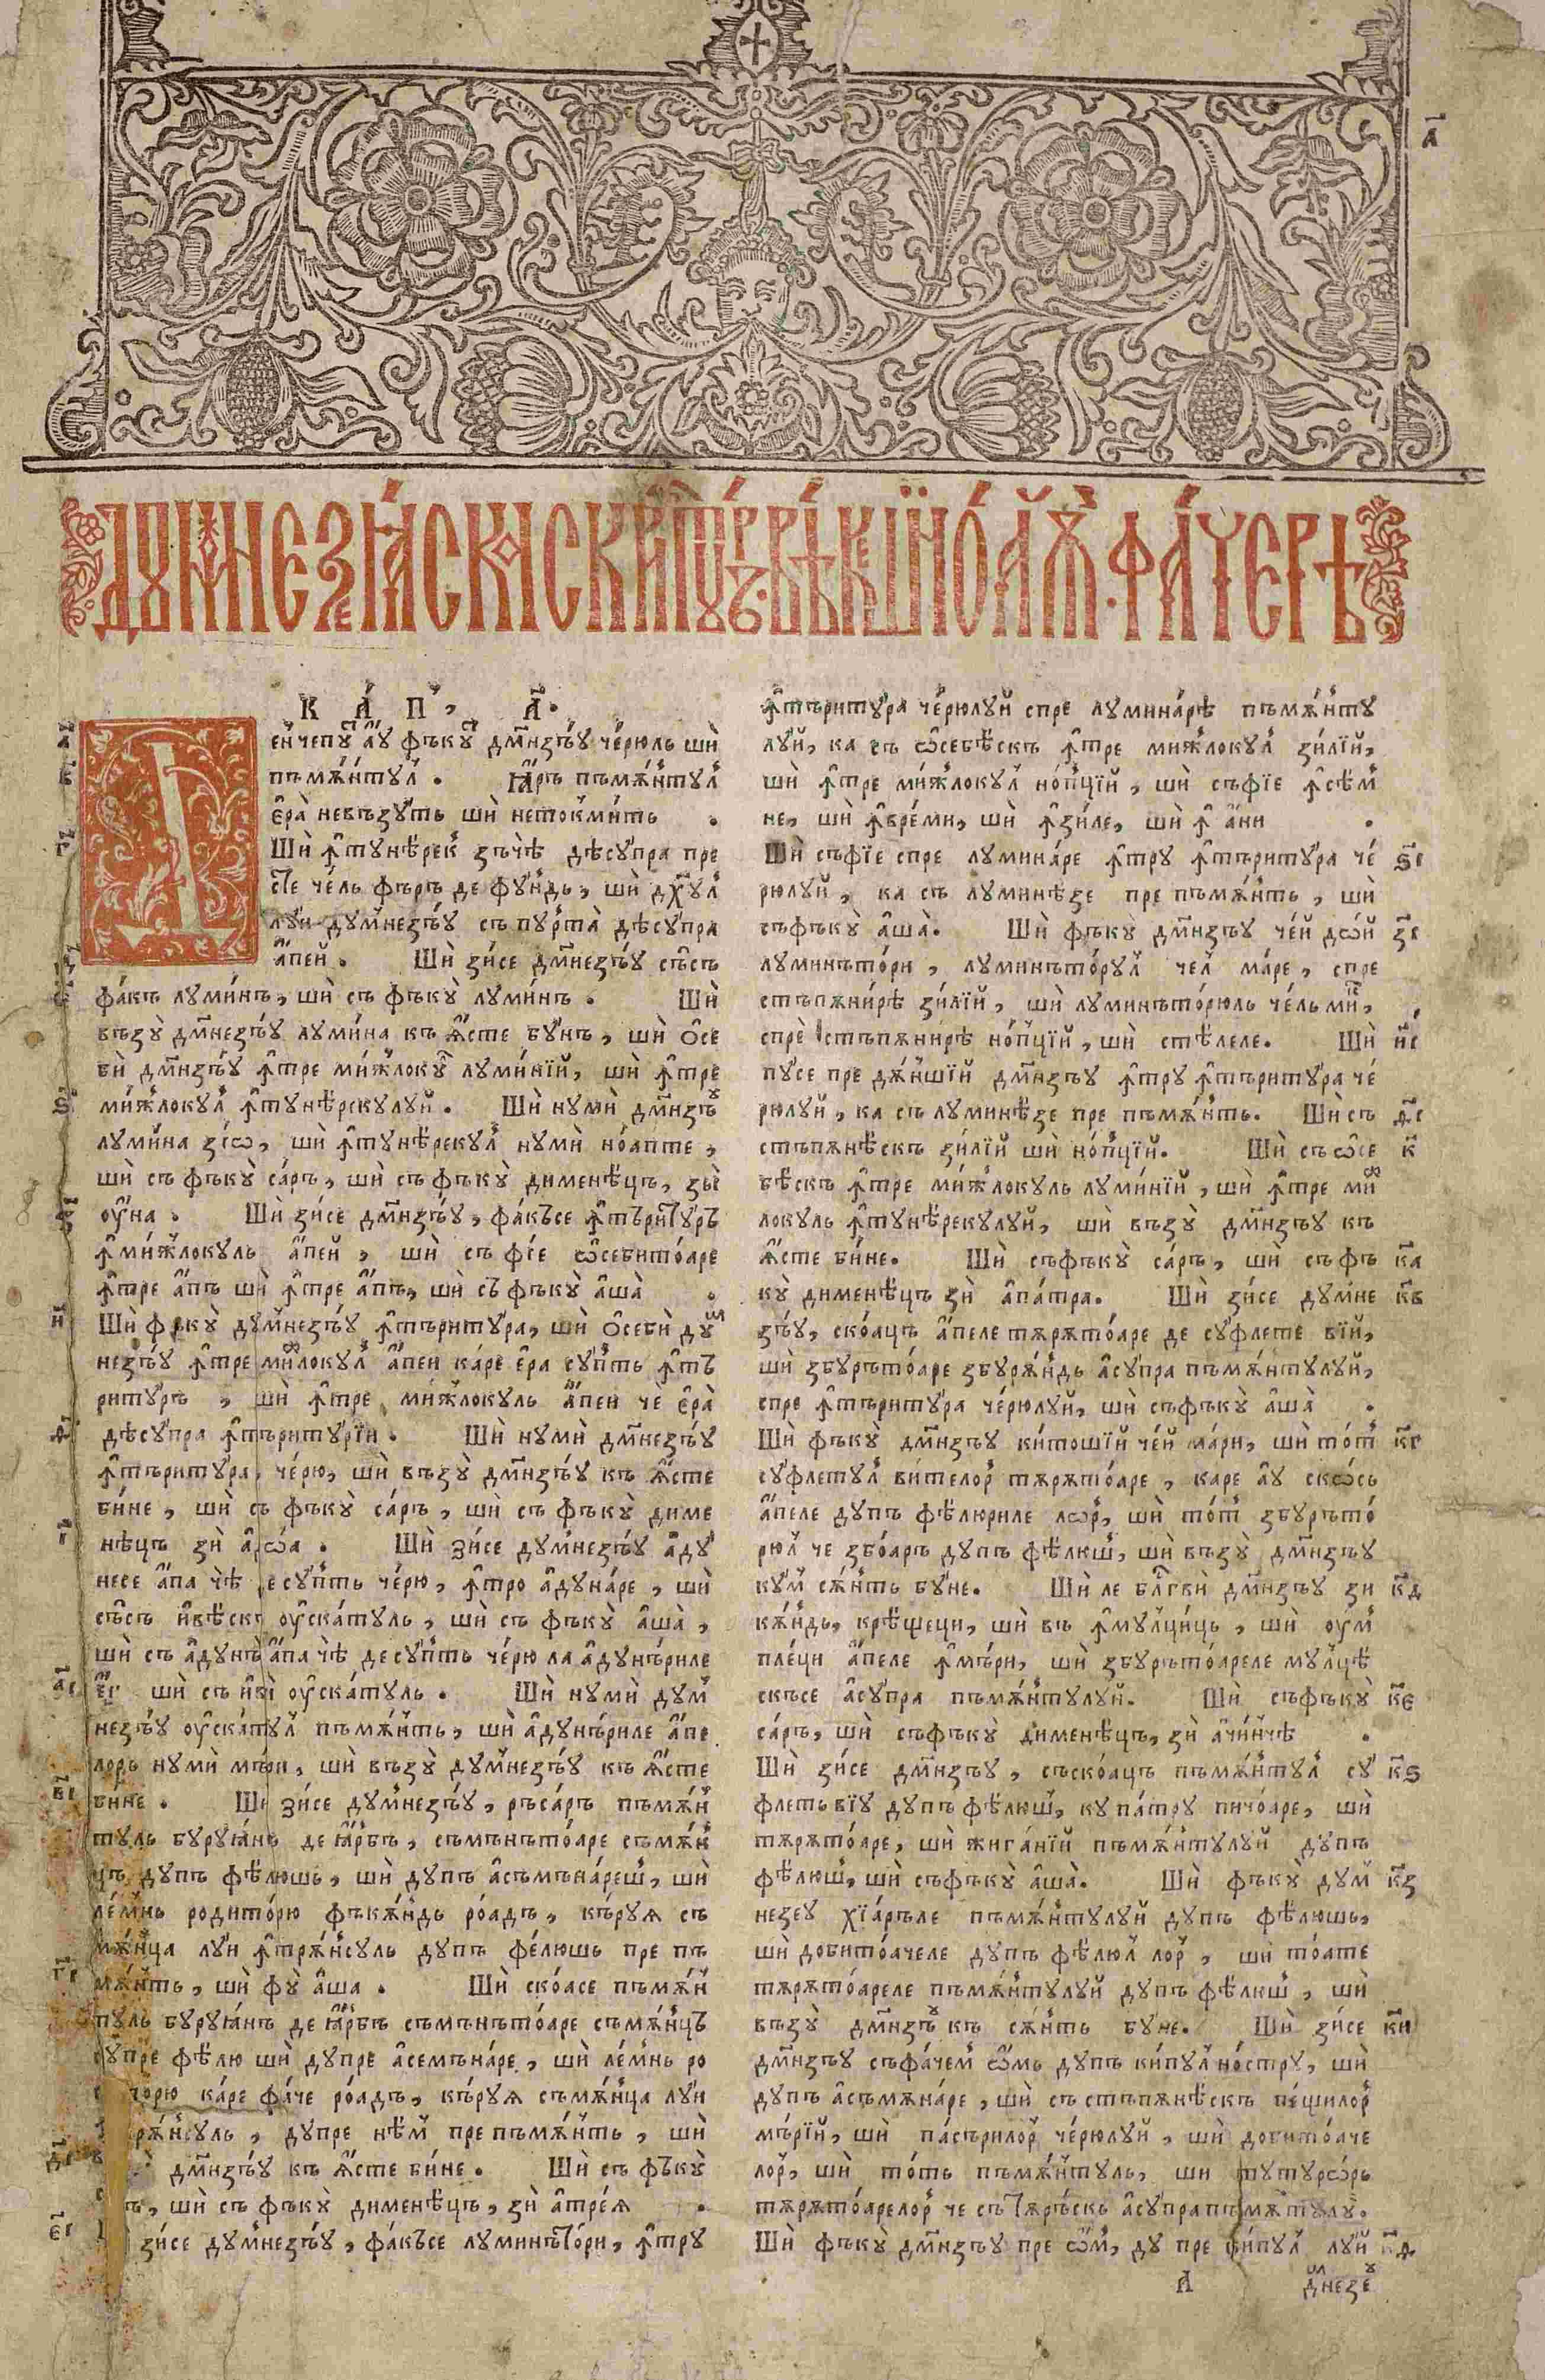 а҃
ДꙋМНЕЗЕꙖСКА СКРИПТꙋРЪ ВѢКЕ ШИ НОАѠ ФАЧЕРѢ
КАП, а҃.
еꙟчепꙋт аꙋ фъкꙋт дм҃незѣꙋ черюль ши
пъмѫнтꙋл . Ꙗръ пъмѫнтꙋл
ера невъзꙋть ши нетокмить .
Ши ꙟтꙋнѣрек зъчѣ дѣсꙋпра пре
сте чель фъръ де фꙋндь, ши дх҃ꙋл
лꙋи дꙋмнезѣꙋ съ пꙋрта дѣсꙋпра
апей . Ши зисе дм҃незѣꙋ съсъ
факъ лꙋминъ, ши съ фъкꙋ лꙋминъ . Ши
възꙋ дм҃незѣꙋ лꙋмина къ ѩсте бꙋнъ, ши ѻсе
би дм҃незѣꙋ ꙟтре мижлокꙋл лꙋминїй, ши ꙟтре
мижлокꙋл ꙟтꙋнѣрекꙋлꙋй . Ши нꙋми дм҃незѣꙋ
лꙋмина зіѡ, ши ꙟтꙋнѣрекꙋл нꙋми ноапте,
ши съ фъкꙋ саръ, ши съ фъкꙋ дименѣцъ, зы
ѹна . Ши зисе дм҃незѣꙋ, факъсе ꙟтъритꙋръ
ꙟмижлокꙋль апей, ши съ фіе ѡсебитоаре
ꙟтре апъ ши ꙟтре апъ, ши съ фъкꙋ аша .
Ши фъкꙋ дꙋмнезѣꙋ ꙟтъритꙋра, ши ѻсеби дꙋм
незѣꙋ ꙟтре мижлокꙋл апеи каре ера сꙋпть ꙟтъ
ритꙋръ, ши ꙟтре мижлокꙋль апеи че ера
дѣсꙋпра ꙟтъритꙋрїи . Ши нꙋми дм҃незѣꙋ
ꙟтъритꙋра, черю, ши възꙋ дм҃незѣꙋ къ ѩсте
бине, ши съ фъкꙋ саръ, ши съ фъкꙋ диме
нѣцъ зи а доѡа . Ши зисе дꙋмнезѣꙋ адꙋ
несе апа чѣ десꙋпть черю, ꙟтро адꙋнаре, ши
съсъ ивѣскъ ѹскатꙋль, ши съ фъкꙋ аша,
ши съ адꙋнъ апа чѣ десꙋпть черю ла адꙋнъриле
ши съ иви ѹскатꙋль . Ши нꙋми дꙋм
незѣꙋ ѹскатꙋл пъмѫнть, ши адꙋнъриле апе
лорь нꙋми мъри, ши възꙋ дꙋмнезѣꙋ къ ѩсте
бине . Ши зисе дꙋмнезѣꙋ, ръсаръ пъмѫн
тꙋль бꙋрꙋꙗнъ де ꙗрбъ, съмънътоаре съмѫн
цъ дꙋпъ фѣлюшь, ши дꙋпъ асъмънареш, ши
лемнь родиторю фъкѫндь роадъ, кърꙋѧ съ
мѫнца лꙋи ꙟтрѫнсꙋль дꙋпъ фелюшь пре пъ
мѫнть, ши фꙋ аша . Ши скоасе пъмѫн
тꙋль бꙋрꙋꙗнъ де ꙗрбъ съмънътоаре съмѫнцъ
дꙋпре фѣлю ши дꙋпре асемънаре, ши лемнь ро
торю каре фаче роадъ, кърꙋѧ съмѫнца лꙋи
рѫнсꙋль, дꙋпре нѣм пре пъмѫнть, ши
дм҃незѣꙋ къ ѩсте бине . Ши съ фъкꙋ
ши съ фъкꙋ дименѣцъ, зи атреѧ .
зисе дꙋмнезѣꙋ, факъсе лꙋминътори, ꙟтрꙋ
ꙟтъритꙋра черюлꙋй спре лꙋминарѣ пъмѫнтꙋ
лꙋй, ка съ ѡсебѣскъ ꙟтре мижлокꙋл зилїй,
ши ꙟтре мижлокꙋл нопцїй, ши съфїе ꙟсѣм
не, ши ꙟвреми, ши ꙟзиле, ши ꙟ ани .
Ши съфїе спре лꙋминаре ꙟтрꙋ ꙟтъритꙋра че
рюлꙋй, ка съ лꙋминѣзе пре пъмѫнть, ши
съфъкꙋ аша. Ши фъкꙋ дм҃незѣꙋ чей дѡй
лꙋминътори, лꙋминъторꙋл чел маре, спре
стъпѫнирѣ зилїй, ши лꙋминъторюль чель мик,
спре стъпѫнирѣ нопцїй, ши стѣлеле. Ши
пꙋсе пре дѫншїй дм҃незѣꙋ ꙟтрꙋ ꙟтъритꙋра че
рюлꙋй, ка съ лꙋминѣзе пре пъмѫнть. Ши съ
стъпѫнѣскъ зилїй ши нопцїй. Ши съ ѡсе
бѣскъ ꙟтре мижлокꙋль лꙋминїй, ши ꙟтре миж
локꙋль ꙟтꙋнѣрекꙋлꙋй, ши възꙋ дм҃незѣꙋ къ
ѩсте бине. Ши съфъкꙋ саръ, ши съ фъ
кꙋ дименѣцъ зи апатра. Ши зисе дꙋмне
зѣꙋ, скоацъ апеле тѫрѫтоаре де сꙋфлете вїй,
ши збꙋрътоаре збꙋрѫндь асꙋпра пъмѫнтꙋлꙋй,
спре ꙟтъритꙋра черюлꙋй, ши съфъкꙋ аша .
Ши фъкꙋ дм҃незѣꙋ китошїй чей мари, ши тот
сꙋфлетꙋл вителор тѫрѫтоаре, каре аꙋ скѡсь
апеле дꙋпъ фѣлюриле лѡр, ши тот збꙋръто
рюл че збоаръ дꙋпъ фѣлюш, ши възꙋ дм҃незѣꙋ
кꙋм сѫнть бꙋне. Ши ле бл҃гви дм҃незѣꙋ зи
кѫндь, крѣщеци, ши въ ꙟмꙋлциць, ши ѹм
плеци апеле ꙟмъри, ши збꙋрътоареле мꙋлцѣ
скъсе асꙋпра пъмѫнтꙋлꙋй. Ши съфъкꙋ
саръ, ши съфъкꙋ дименѣцъ, зи ачинчѣ .
Ши зисе дм҃незѣꙋ, съскоацъ пъмѫнтꙋл сꙋ
флеть вїꙋ дꙋпъ фѣлюш, кꙋ патрꙋ пичоаре, ши
тѫрѫтоаре, ши жиганїй пъмѫнтꙋлꙋй дꙋпъ
фѣлюш, ши съфъкꙋ аша. Ши фъкꙋ дꙋм
незеꙋ хїаръле пъмѫнтꙋлꙋй дꙋпъ фѣлюшь,
ши добитоачеле дꙋпъ фѣлюл лор, ши тоате
тѫрѫтоареле пъмѫнтꙋлꙋй дꙋпъ фѣлюш, ши
възꙋ дм҃незѣꙋ къ сѫнть бꙋне. Ши зисе
дм҃незѣꙋ съфачем ѡмь дꙋпъ кипꙋл нострꙋ, ши
дꙋпъ асъмѫнаре, ши съ стъпѫнѣскъ пещилор
мърїй, ши пасърилор черюлꙋй, ши добитоаче
лор, ши тоть пъмѫнтꙋль, ши тꙋтꙋрѡрь
тѫрѫтоарелор че сътѫрѣскь асꙋпра пъмѫнтꙋлꙋ.
Ши фъкꙋ дм҃незѣꙋ пре ѡм, дꙋ пре кипꙋл лꙋй
А дм҃незеꙋ